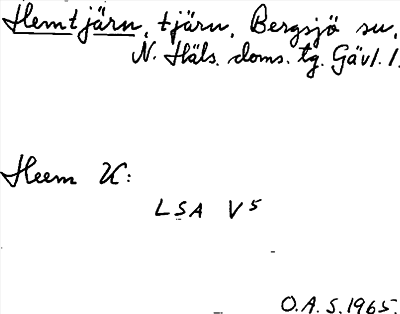 Hemtjärn, tjärn, Bergsjö sn,
N. Häls. doms. tg. Gävl. l.
Heem U:
LSA V5
O.A.S. 1965.